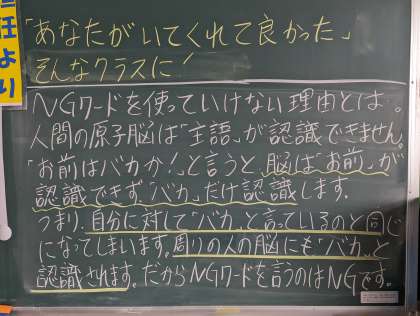 担任より
「あなたがいてくれて良かった」
そんなクラスに!
NGワードを使っていけない理由とは。
人間の原子脳は「主語」が認識できません。
「お前はバカか!」と言うと、脳は「お前」が
認識できず、「バカ」だけ認識します.
つまり、自分に対して「バカ」と言っているのと同じ
になってしまいます。周りの人の脳にも「バカ」と
認識されます。だからNGワードを言うのはNGです。